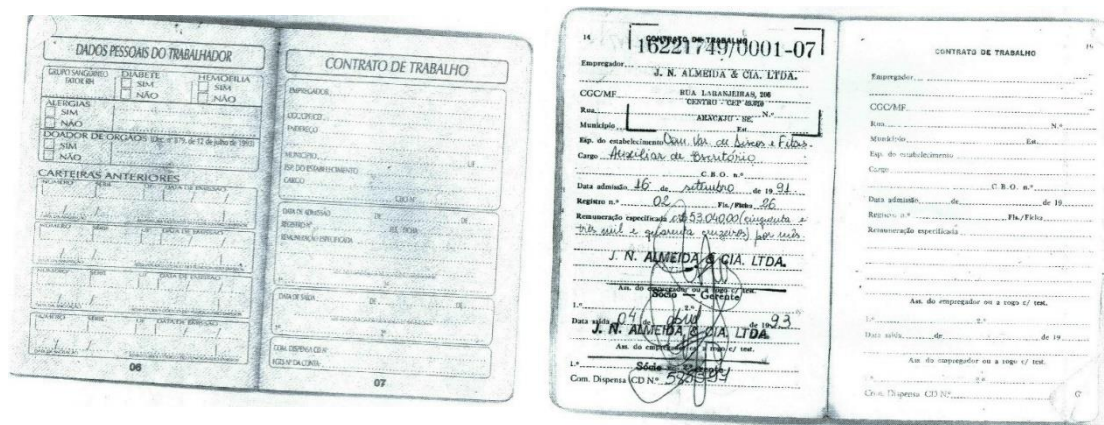 DADOS PESSOAIS DO TRABALHADOR
GRUPO SANGÜÍNEO
FATOR RH
DIABETE
SIM
NÃO
HEMOFILIA
SIM
NÃO
ALERGIAS
SIM
NÃO
DOADOR DE ORGÃOS (Dec. nº 879, de 12 de julho de 1993)
SIM
NÃO
CARTEIRAS ANTERIORES
NÚMERO SÉRIE UF DATA DE EMISSÃO
NÚMERO SÉRIE UF DATA DE EMISSÃO
NÚMERO SÉRIE UF DATA DE EMISSÃO
NÚMERO SÉRIE UF DATA DE EMISSÃO
06
CONTRATO DE TRABALHO
EMPREGADOR
CGC/CPF/CEI
ENDEREÇO
MUNICÍPIO UF
ESP. DO ESTABELECIMENTO
CARGO
CBO Nº
DATA DE ADMISSÃO DE DE
REGISTRO Nº FLS. / FICHA
REMUNERAÇÃO ESPECIFICADA
1º 2º
DATA DE SAÍDA DE DE
1º 2º
COM. DISPENSA CD Nº
FGTS Nº DA CONTA
07
14
CONTRATO DE TRABALHO
16221749/0001-07
Empregador
J. N. ALMEIDA & CIA. LTDA.
CGC/MF
RUA LARANJEIRAS, 206
CENTRO - CEP 49.010
Rua N.º
ARACAJU - SE.
Município Est.
Esp. do estabelecimento Com. Var. de Discos e Fitas.
Cargo Auxiliar de Escritório
C. B. O. n.º
Data admissão 16 de setembro de 19 91
Registro n.º 02 Fls./Ficha 26
Remuneração especificada cr$ 53.040,00 (cinquenta e
três mil e quarenta cruzeiros) por mês
J. N. ALMEIDA & CIA. LTDA.
Ass. do empregador ou a rogo c/ test.
Sócio — Gerente
1.º 2.º
Data saída 04 de abril de 19 93
J. N. ALMEIDA & CIA. LTDA.
Ass. do empregador ou a rogo c/ test.
1.º Sócio — Gerente
Com. Dispensa CD N.º
CONTRATO DE TRABALHO
Empregador
CGC/MF
Rua N.º
Município Est.
Esp. do estabelecimento
Cargo
C. B. O. n.º
Data admissão de de 19
Registro n.º Fls./Ficha
Remuneração especificada
Ass. do empregador ou a rogo c/ test.
1.º 2.º
Data saída de de 19
Ass. do empregador ou a rogo c/ test.
1.º 2.º
Com. Dispensa CD N.º